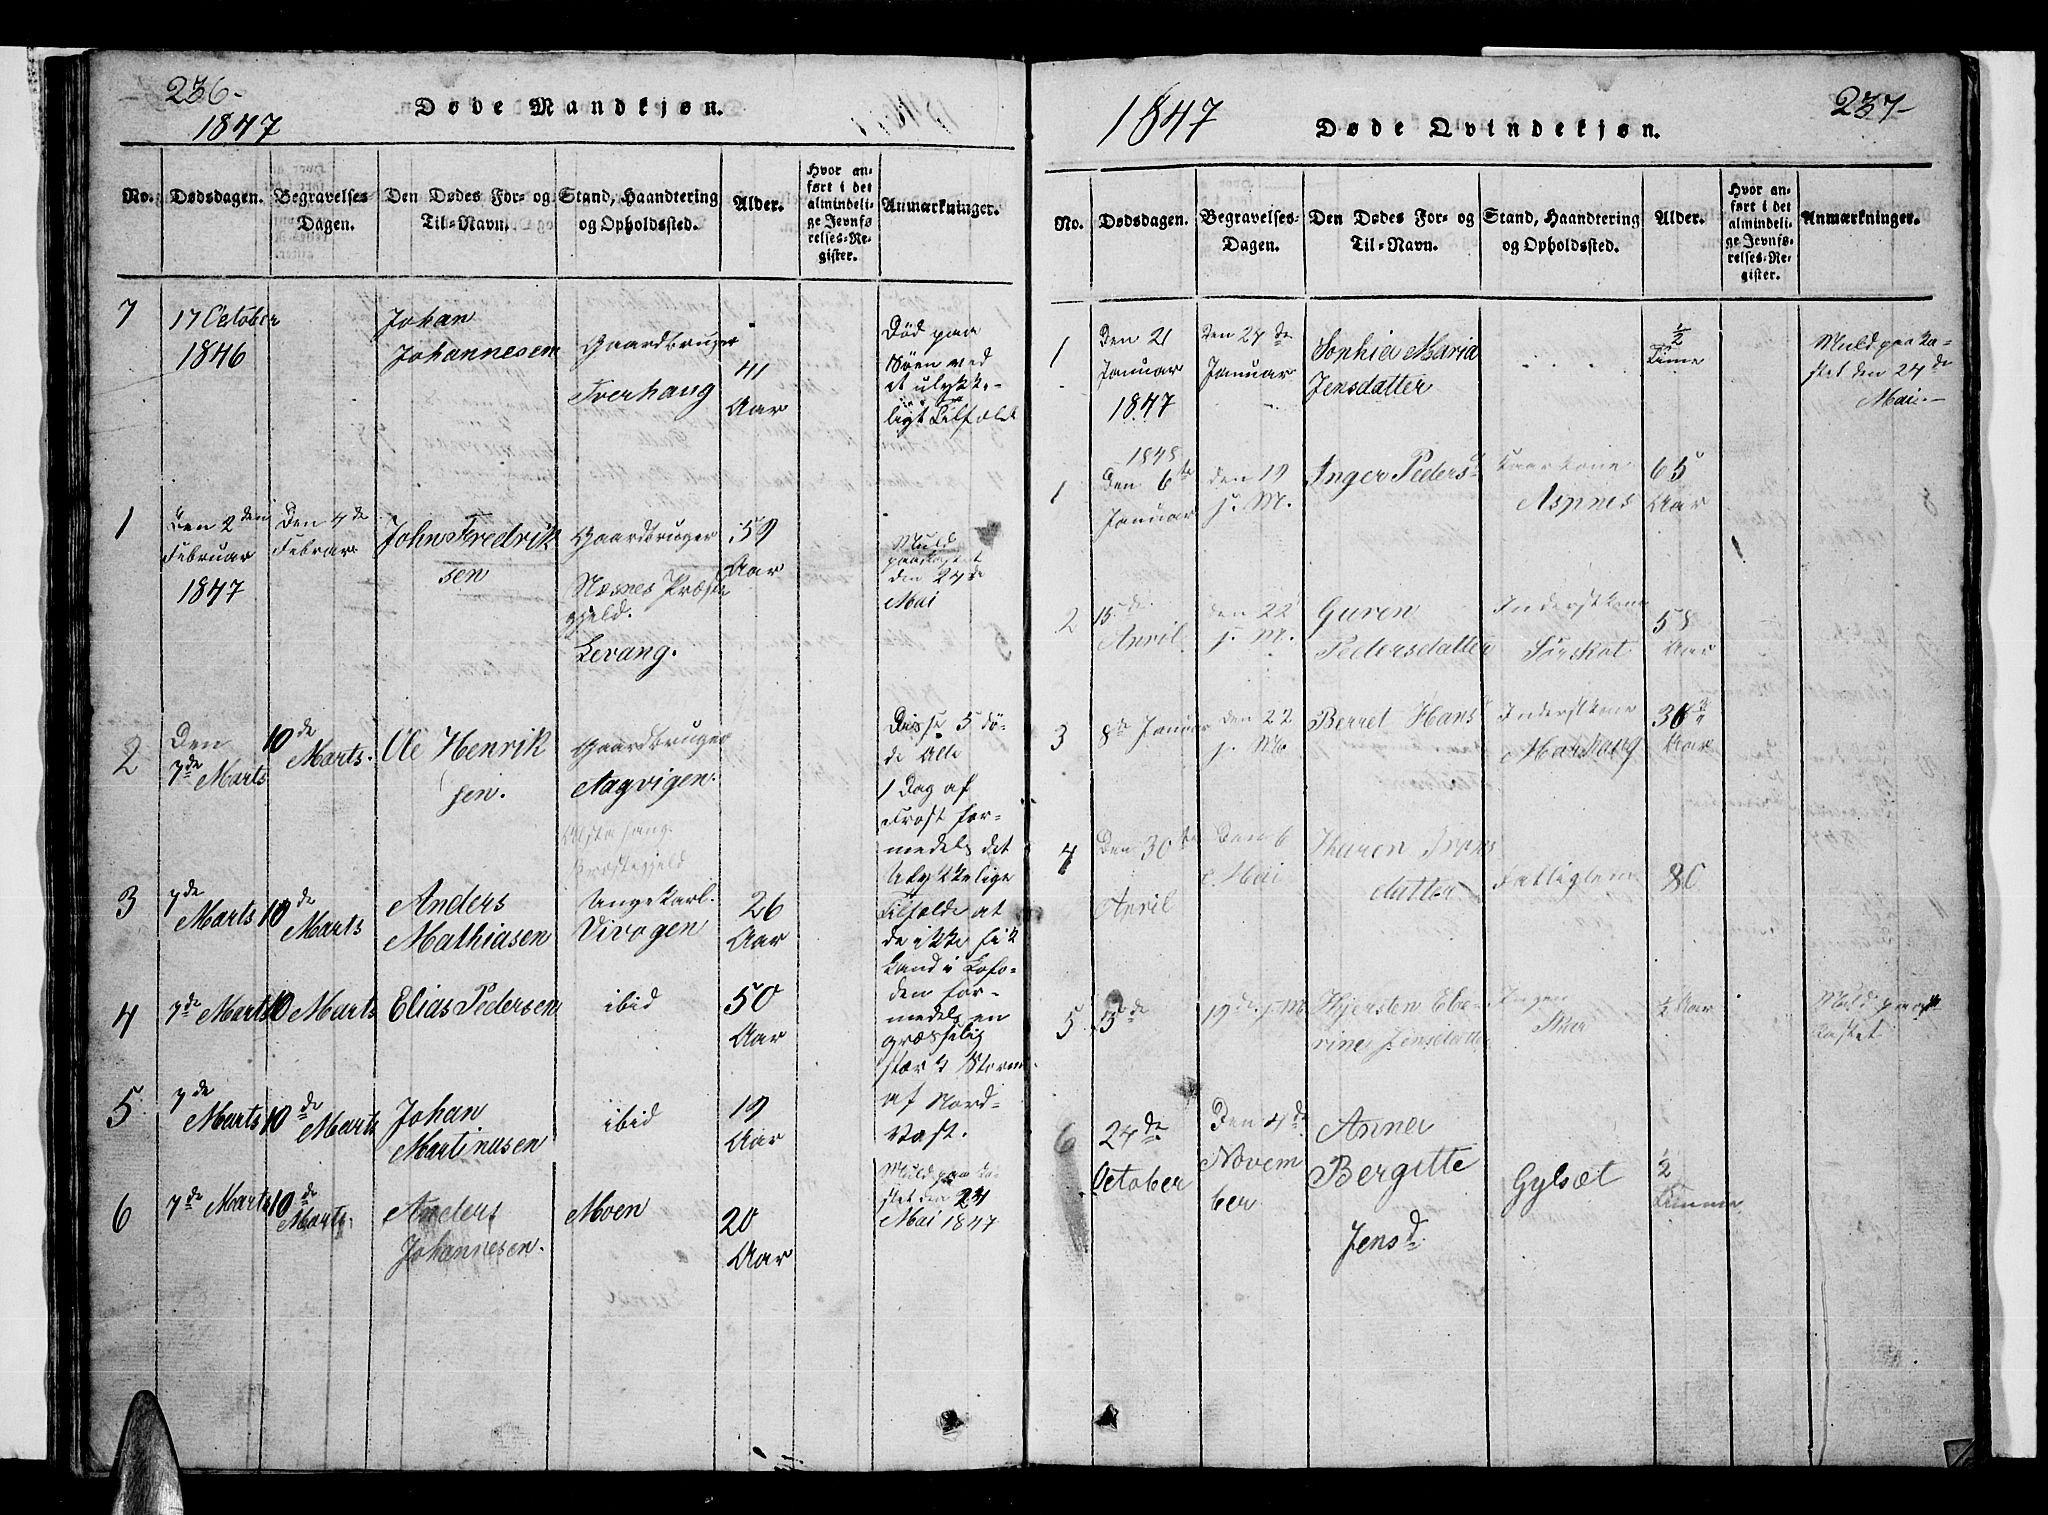 236-
1847
Døde Mandkjøn.
No.
Dødsdagen.
Begravelses-
Dagen.
Den Dødes For- og
Til-Navn.
Stand, Haandtering
og Opholdssted.
Alder.
Hvor an-
ført i det
almindeli-
ge Jevnfø-
relses-Re-
gister.
Anmærkninger.
7
17 October
1846
Johan
Johannesen
Gaardbruger
Tverhaug
41
Aar
Død paa
Søen ved
et ulykke-
ligt Tilfælde
1
Den 2den
Februar
1847
Den 4de
Februar
John Fredrik
sen
Gaardbruger
Næsnes Præste
gjeld.
Levang.
59
Aar
Muld
paakastet
den 24de
Mai
2
Den
7de Marts
10de
Marts.
Ole Henrik
sen.
Gaardbruger
Aagvigen.
Alstahaug
Præstegjeld
Disse 5 dø-
de Alle
1 Dag af
Frost for-
medels det
Ulykkelige
Tilfælde at
de ikke fik
Land i Lofo-
den for-
medels en
græsselig
stærk Storm
af Nord-
Væst.
3
7de
Marts
10de
Marts
Anders
Mathiasen
Ungekarl.
Vivogen
26
Aar
4
7de Marts
10 Marts
Elias Pedersen
ibid
50
Aar
5
7de
Marts
10de
Marts
Johan
Martinusen
ibid
19
Aar
6
7de Marts
10de
Marts
Anders
Johannesen.
Moen
20
Aar
Muld paaka-
stet den 24
Mai 1847
1847
Døde Qvindekjøn.
237-
No.
Dødsdagen.
Begravelses-
Dagen.
Den Dødes For- og
Til-Navn.
Stand, Haandtering
og Opholdssted.
Alder.
Hvor an-
ført i det
almindeli-
ge Jevnfø-
relses-Re-
gister.
Anmærkninger.
1
Den 21
Januar
1847
Den 24de
Januar
Sophia Maria
Jensdatter
1/2
Time
Muld paaka-
stet den 24de
Mai.
1
1848
Den 6te
Januar
den 19
j. M.
Inger Pedersd
Kaarkone
Aspnes
65
Aar
2
15de
Anril
den 22
j. M.
Guren
Pedersdatter
Inderstkone
Sørskot
58
Aar
3
8de Januar
den 22
j. M.
Berret Hans
Inderstkone
36
Aar
4
Den 30te
Anril
Den 6
Mai
Karen
datter
Fattiglem
80
5
5de
19de j. M
Kjersten
rine Jensdatter
1/2 Aar
Muld paa
kastet
6
24de
October
Den 4de
Novem
ber
Anner
Bergitte
Jensd
Gylsæt
1/2
Timme